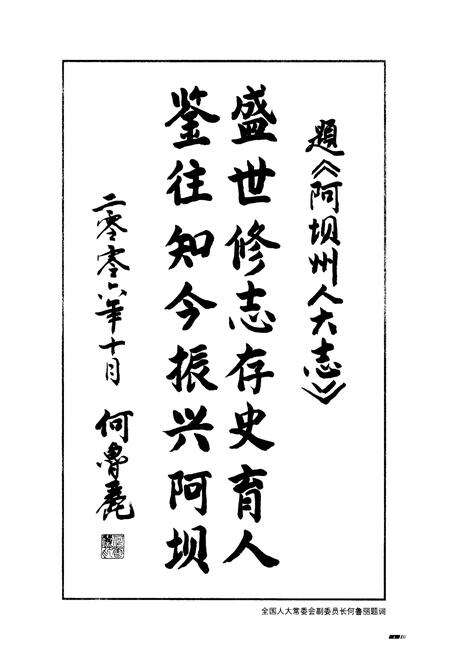 題《阿坝州人大志》
盛世修志存史育人
鉴往知今振兴阿坝
二零零六年十月
何鲁丽
全国人大常委会副委员长何鲁丽题词